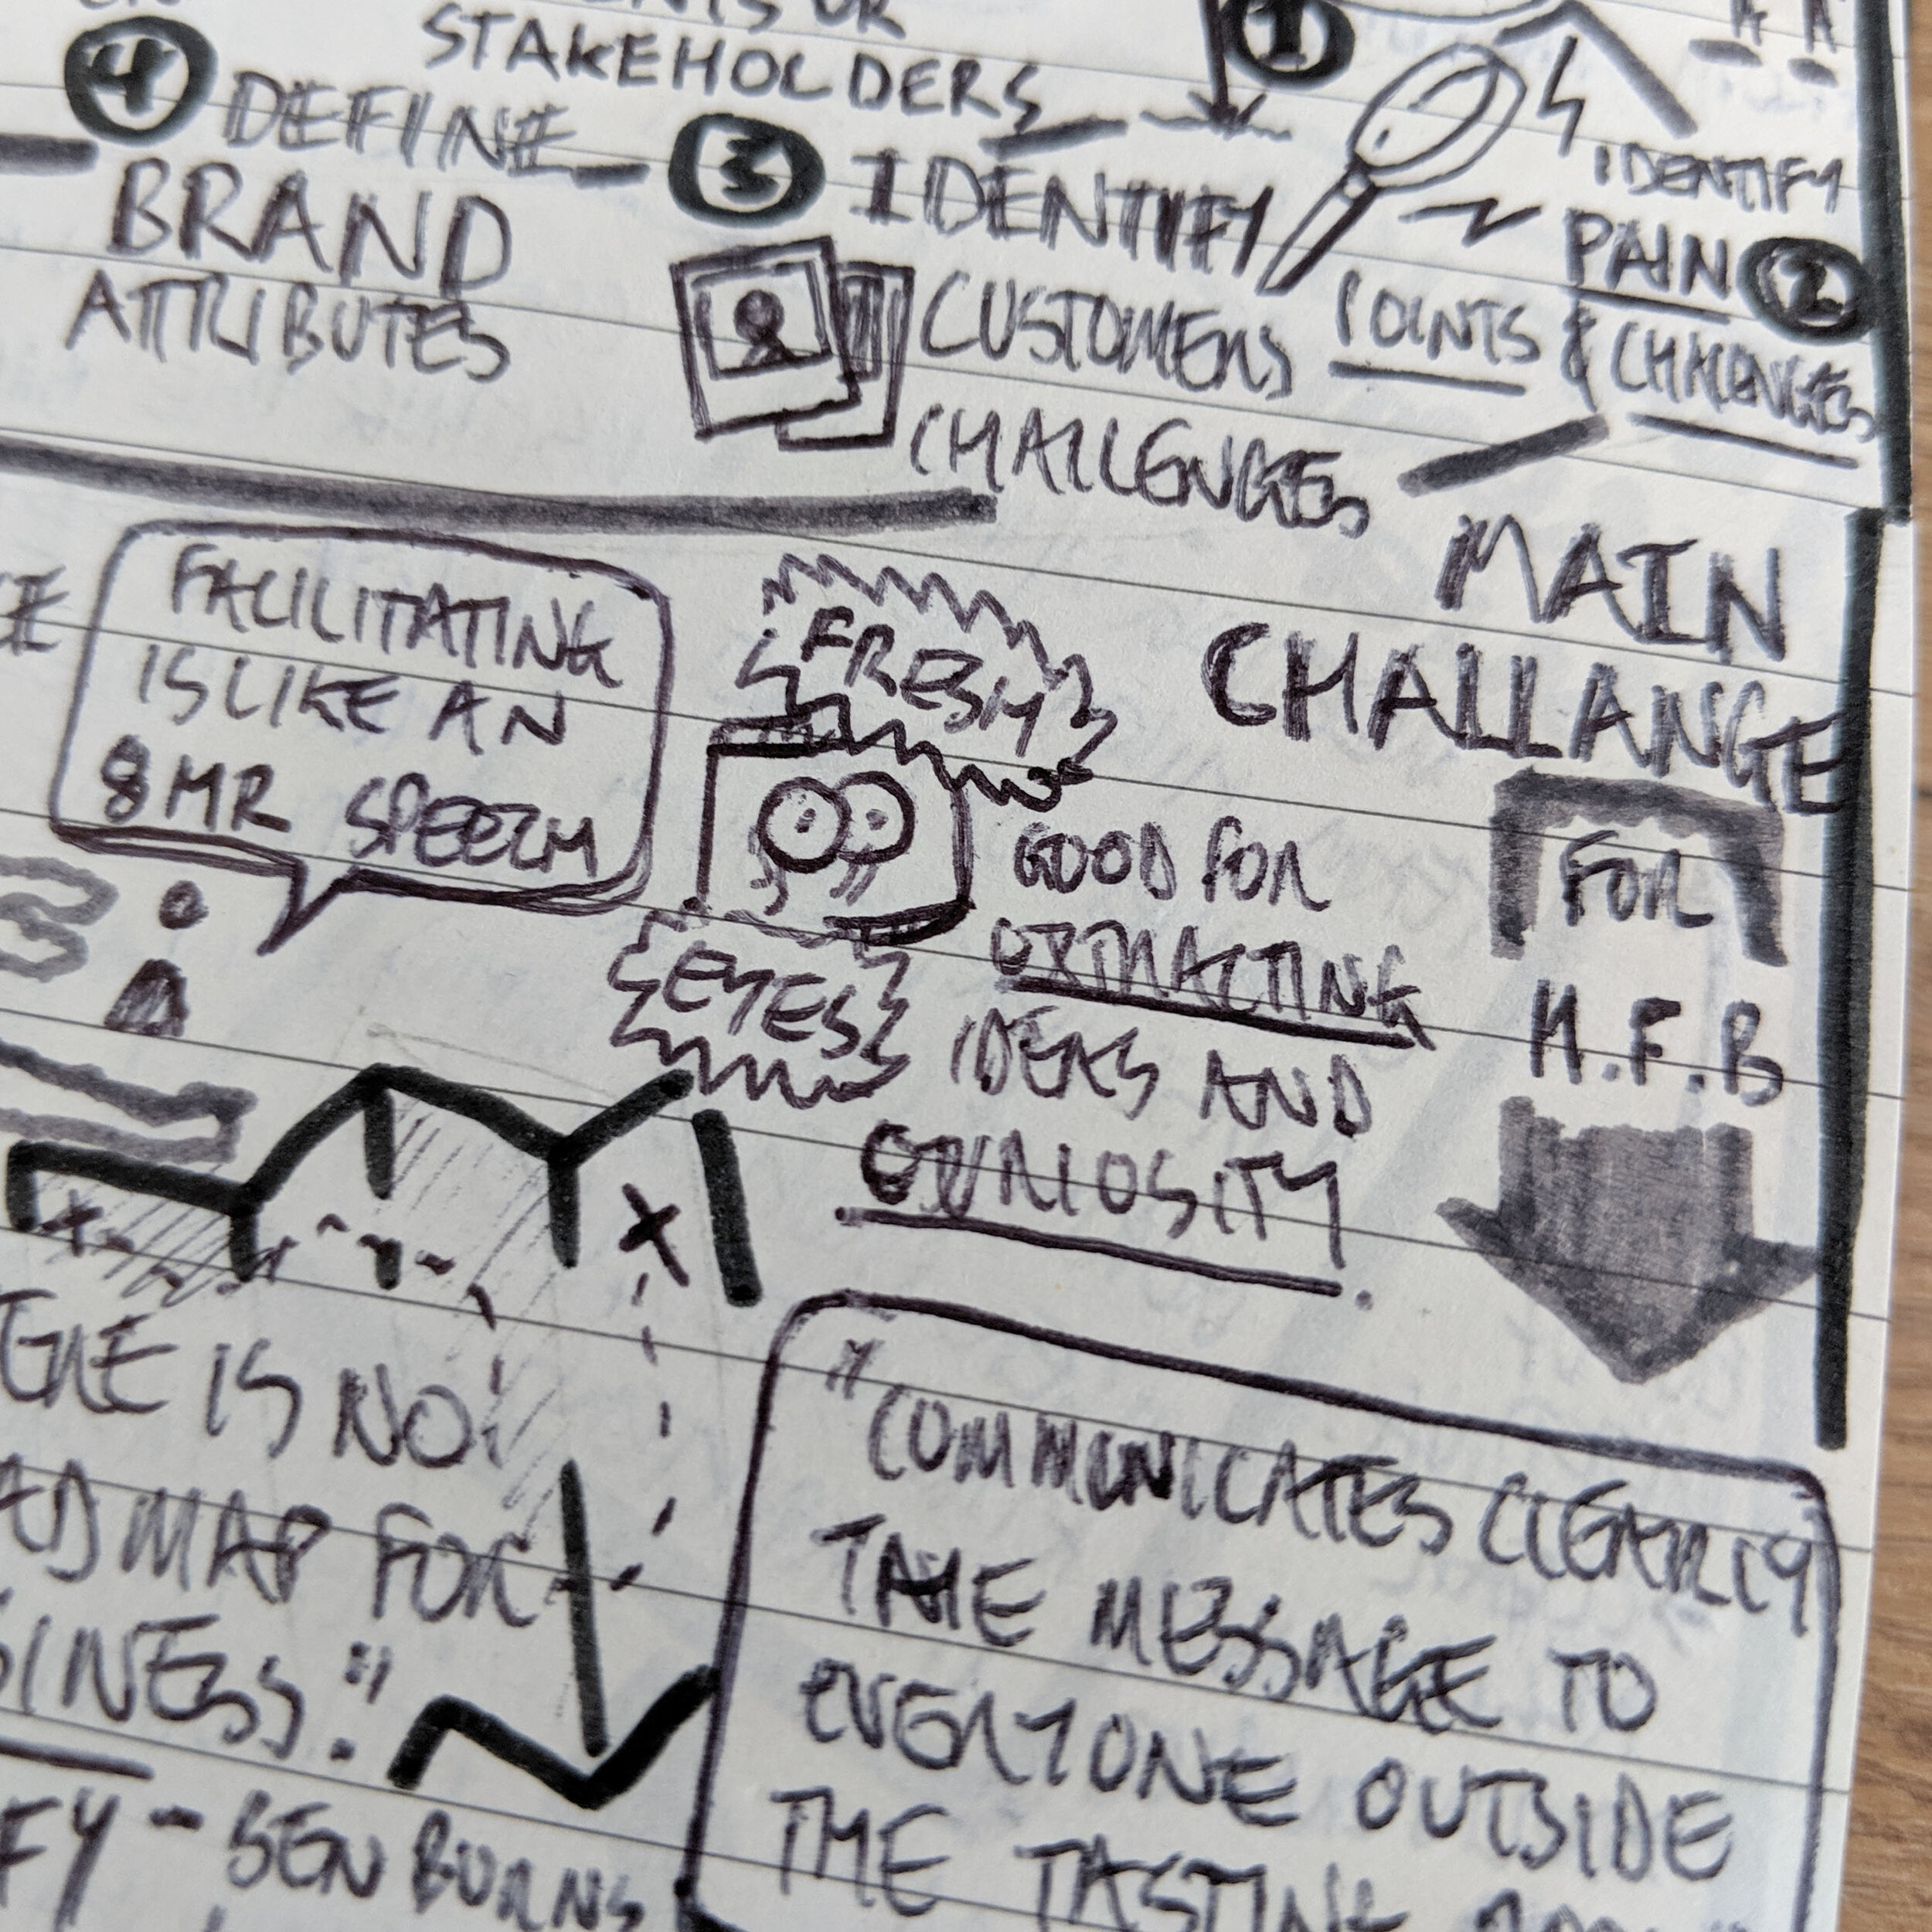 STAKEHOLDERS
1
4 DEFINE
BRAND
ATTRIBUTES
3 IDENTIFY
CUSTOMERS
CHALLENGES
IDENTIFY
PAIN 2
POINTS & CHALLENGES
MAIN
CHALLANGE
FOR
M.F.B
FACILITATING
IS LIKE AN
8 HR SPEECH
FRESH
EYES
GOOD FOR
EXTRACTING
IDEAS AND
CURIOSITY.
IS NO
MAP FOR
"
- BEN BURNS
"COMMUNICATES CLEARLY
THE MESSAGE TO
EVERYONE OUTSIDE
THE TASTING